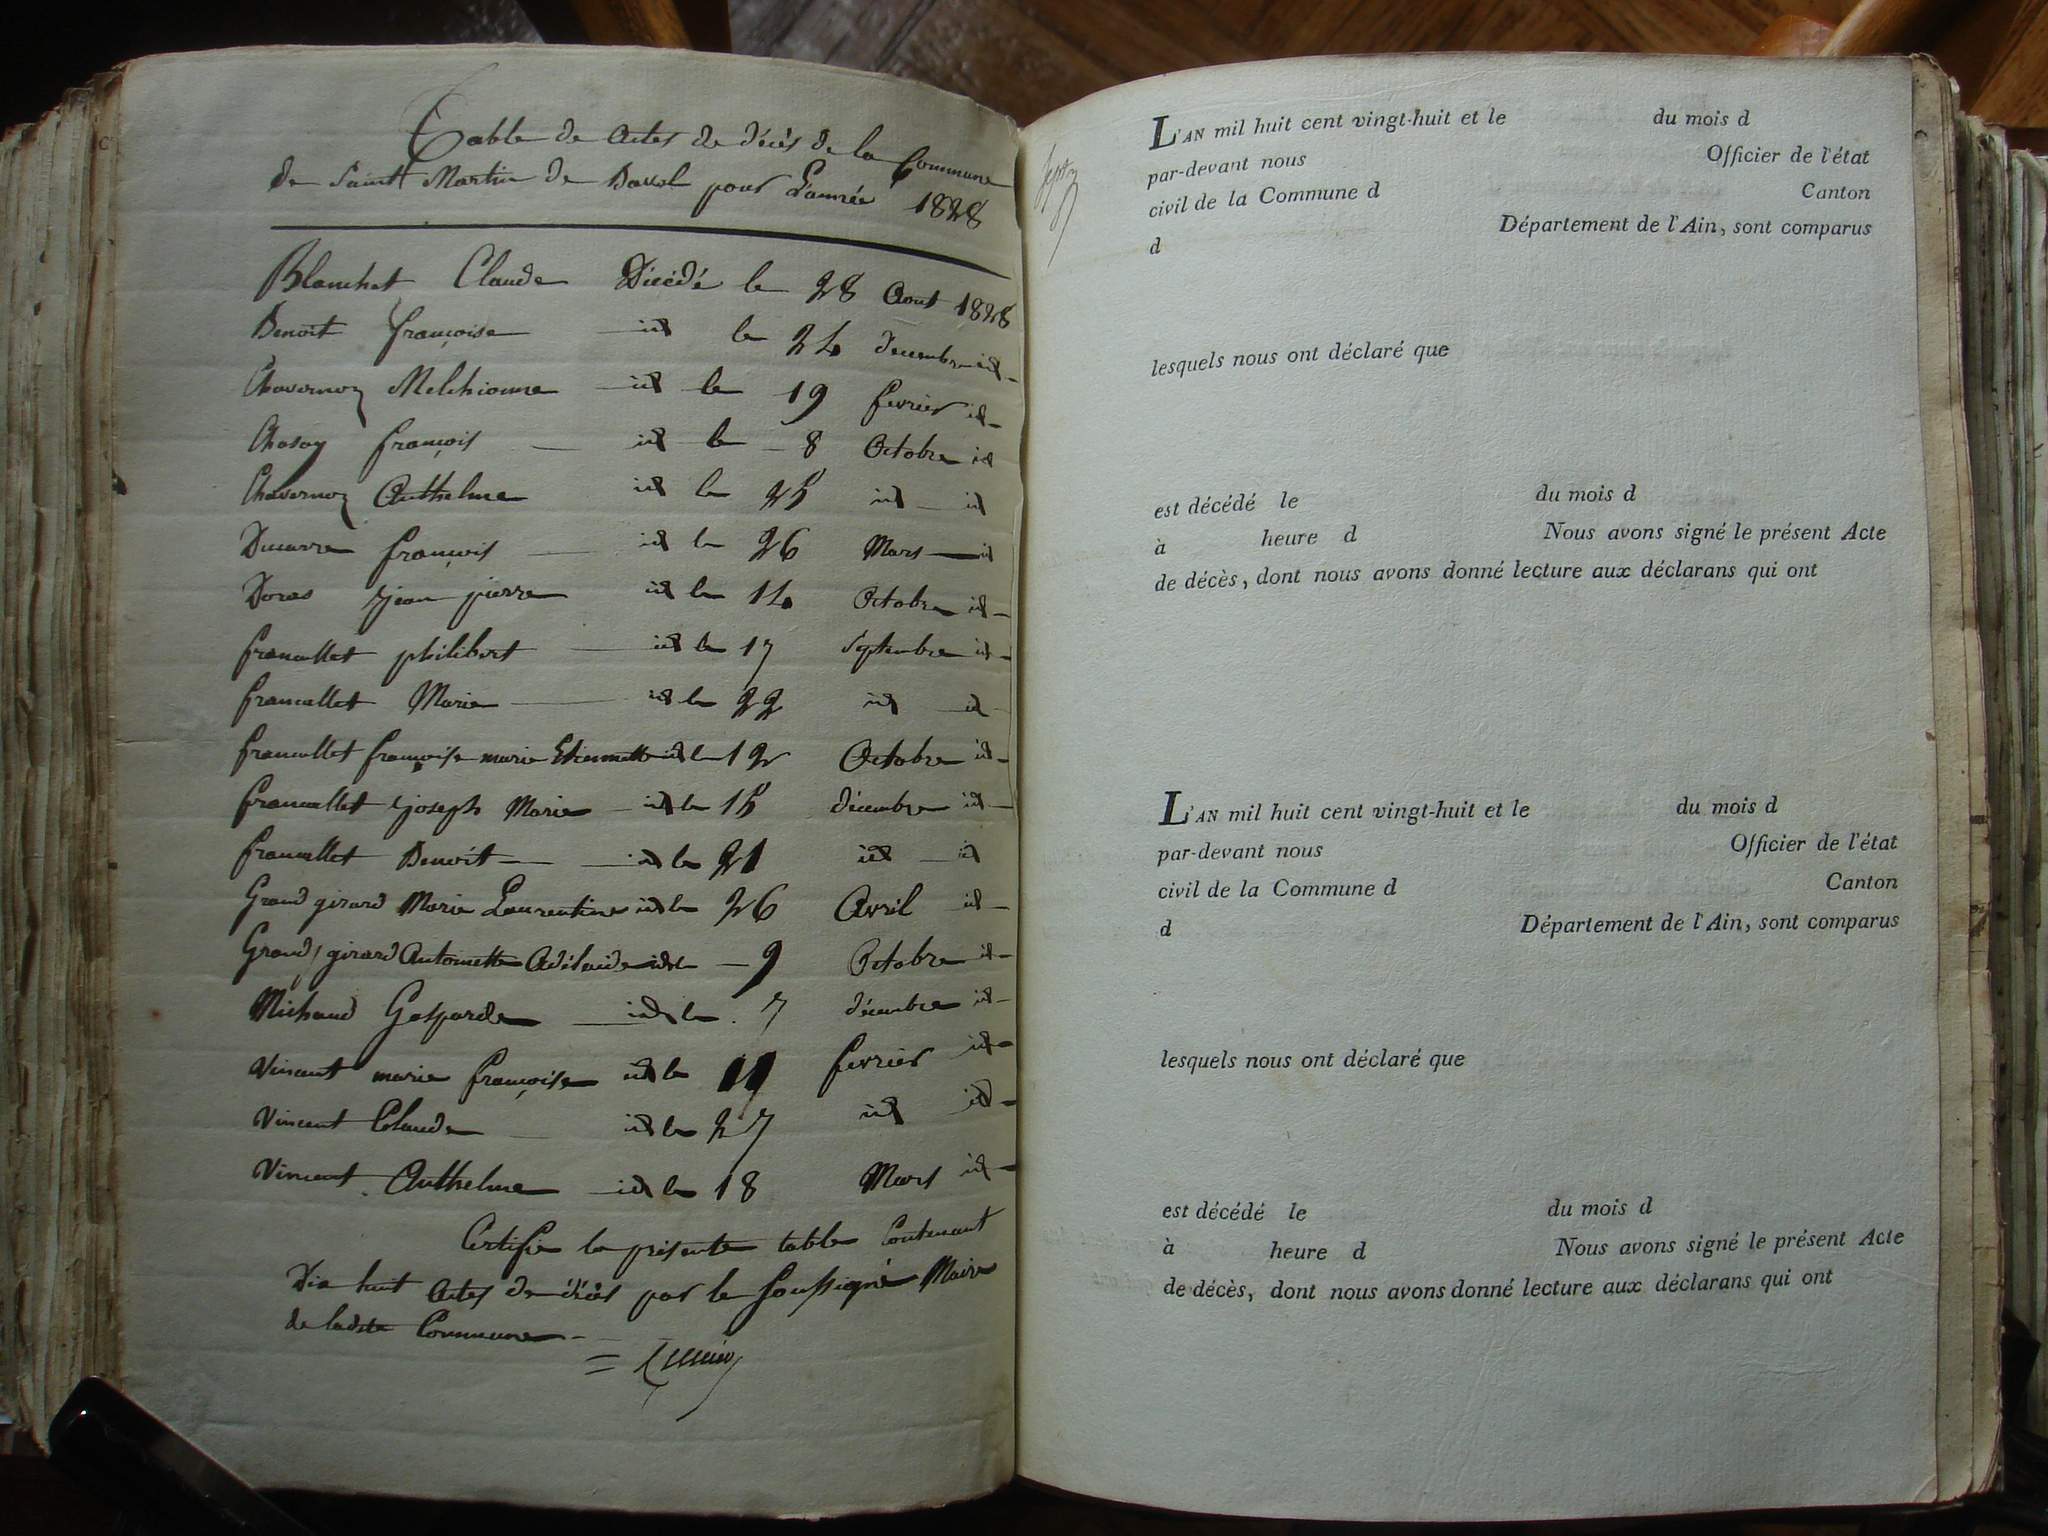 Table de Actes de décès de la Commune
de Saint Martin de Bavel pour L'année 1828
Blanchet Claude Décédé le 28 Aout 1828
Benoit françoise id le 24 decembre id
Chavornoz Melchionne id le 19 fevrier id
Chosoy françois id le 8 Octobre id
Chavornoz Anthelme id le 25 id id
Ducarre françois id le 26 Mars id
Doras jean pierre id le 14 Octobre id
francillet philibert id le 17 Septembre id
francillet Marie id le 22 id id
francillet françoise marie Etiennette id le 12 Octobre id
francillet joseph Marie id le 15 décembre id
francillet Benoit id le 21 id id
Grand girard Marie Laurentine id le 26 Avril id
Grand girard Antoinette Adélaide id le 9 Octobre id
Michaud Gasparde id le 7 décembre id
Vincent marie françoise id le 19 fevrier id
Vincent Claude id le 27 id id
Vincent Anthelme id le 18 Mars id
Certifie la présente table Contenant
Dix huit actes de décès par le Soussigné Maire
de ladite Commune
L'AN mil huit cent vingt-huit et le du mois d
par-devant nous Officier de l'état
civil de la Commune d Canton
d Département de l'Ain, sont comparus
lesquels nous ont déclaré que
est décédé le du mois d
à heure d Nous avons signé le présent Acte
de décès, dont nous avons donné lecture aux déclarans qui ont
L'AN mil huit cent vingt-huit et le du mois d
par-devant nous Officier de l'état
civil de la Commune d Canton
d Département de l'Ain, sont comparus
lesquels nous ont déclaré que
est décédé le du mois d
à heure d Nous avons signé le présent Acte
de décès, dont nous avons donné lecture aux déclarans qui ont